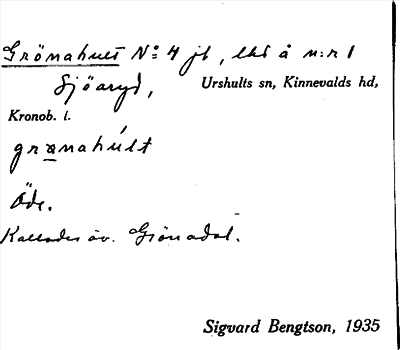 Grönahult No 4 jb, lhs å n:r 1
Sjöaryd, Urshults sn, Kinnevalds hd,
Kronob. l.
grœnahúlt
Öde.
Kallades äv. Grönadal.
Sigvard Bengtson, 1935